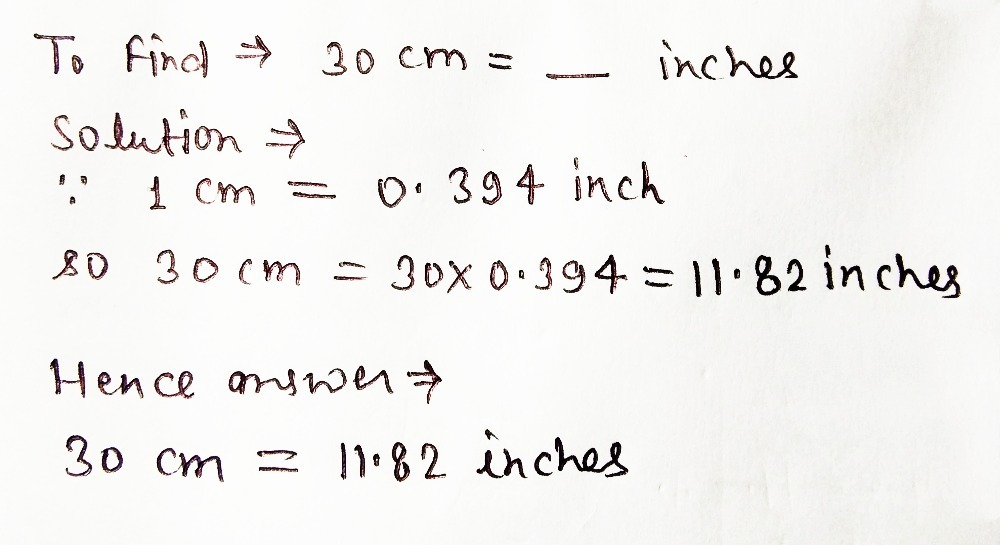 To find ⇒ 30 cm = __ inches
Solution ⇒
∵ 1 cm = 0.394 inch
so 30 cm = 30x0.394 = 11.82 inches
Hence answer ⇒
30 cm = 11.82 inches